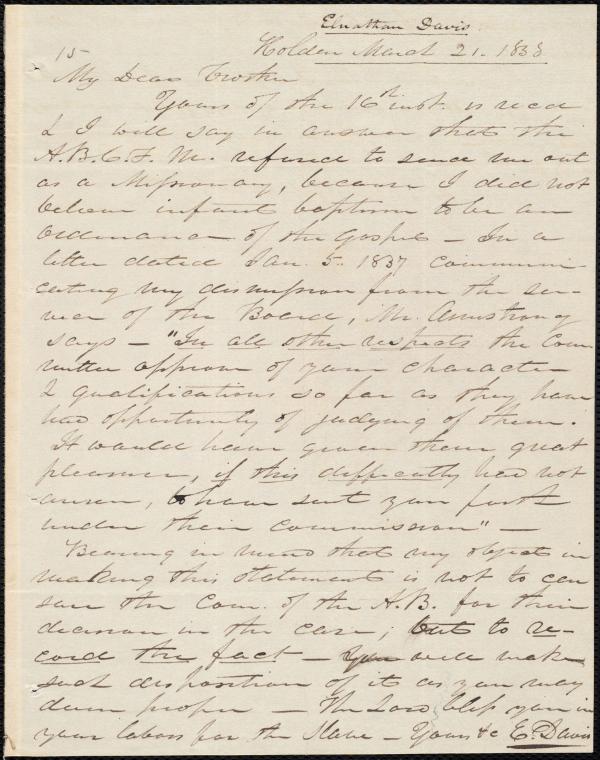 Elnathan Davis
15
Holden March 21. 1838
My Dear Brother
Yours of the 16th inst. is recd
& I will say in answer that the
A.B.C.F.M. refused to send me out
as a Missionary, because I did not
believe infant baptism to be an
ordinance of the Gospel – In a
letter dated Jan. 5. 1837 communi-
cating my dismission from the ser-
vice of the Board, Mr. Armstrong
says – "In all other respects the Com-
mittee approve of your character
& qualifications so far as they have
had opportunity of judging of them.
It would have given them great
pleasure, if this difficulty had not
arisen, to have sent you forth
under their commission" –
Bearing in mind that my object in
making this statement is not to cen
sure the Com. of the A.B. for their
decision in the case; but to re-
cord the fact – You will make
such disposition of it as you may
deem proper – The Lord bless you in
your labors for the Slave – Yours &c E. Davis